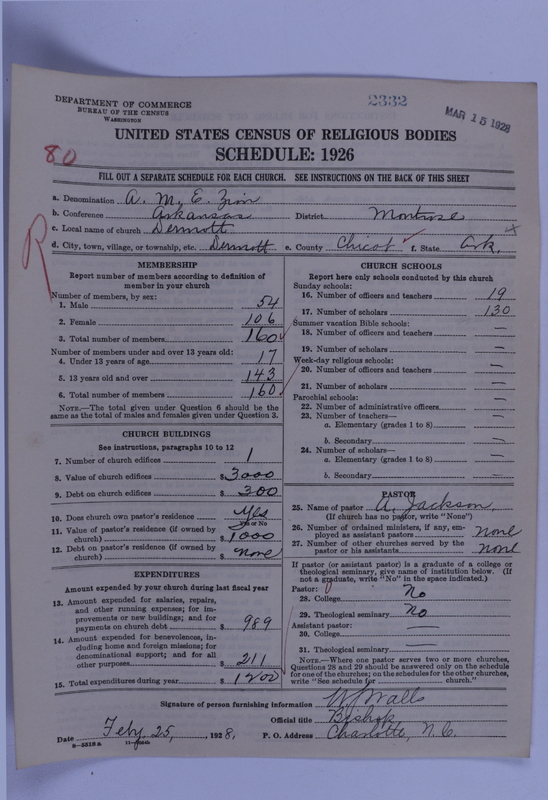 DEPARTMENT OF COMMERCE
BUREAU OF THE CENSUS
WASHINGTON
2332
MAR 15 1928
UNITED STATES CENSUS OF RELIGIOUS BODIES
80
SCHEDULE: 1926
FILL OUT A SEPARATE SCHEDULE FOR EACH CHURCH. SEE INSTRUCTIONS ON THE BACK OF THIS SHEET
a. Denomination A. M. E. Zion
b. Conference Arkansas District Montrose
c. Local name of church Dermott
d. City, town, village, or township, etc. Dermott e. County Chicot f. State Ark.
R
MEMBERSHIP
Report number of members according to definition of
member in your church
Number of members, by sex:
1. Male 54
2. Female 106
3. Total number of members 160
Number of members under and over 13 years old:
4. Under 13 years of age 17
5. 13 years old and over 143
6. Total number of members 160
NOTE.—The total given under Question 6 should be
same as the total of males and females given under Question 3.
CHURCH BUILDINGS
See instructions, paragraphs 10 to 12
7. Number of church edifices 1
8. Value of church edifices $ 3000
9. Debt on church edifices $ 300
10. Does church own pastor's residence Yes
Yes or No
11. Value of pastor's residence (if owned by
church) $ 1000
12. Debt on pastor's residence (if owned by
church) $ none
EXPENDITURES
Amount expended by your church during last fiscal year
13. Amount expended for salaries, repairs,
and other running expenses; for im-
provements or new buildings; and for
payments on church debt $ 989
14. Amount expended for benevolences, in-
cluding home and foreign missions; for
denominational support; and for all
other purposes $ 211
15. Total expenditures during year $ 1200
CHURCH SCHOOLS
Report here only schools conducted by this church
Sunday schools:
16. Number of officers and teachers 19
17. Number of scholars 130
Summer vacation Bible schools:
18. Number of officers and teachers —
19. Number of scholars —
Week-day religious schools:
20. Number of officers and teachers —
21. Number of scholars —
Parochial schools:
22. Number of administrative officers —
23. Number of teachers—
a. Elementary (grades 1 to 8) —
b. Secondary —
24. Number of scholars—
a. Elementary (grades 1 to 8) —
b. Secondary —
PASTOR
25. Name of pastor A. Jackson
(If church has no pastor, write "None")
26. Number of ordained ministers, if any, em-
ployed as assistant pastors none
27. Number of other churches served by the
pastor or his assistants none
If pastor (or assistant pastor) is a graduate of a college or
theological seminary, give name of institution below. (If
not a graduate, write "No" in the space indicated.)
Pastor:
28. College No
29. Theological seminary No
Assistant pastor:
30. College —
31. Theological seminary —
NOTE.—Where one pastor serves two or more churches,
Questions 28 and 29 should be answered only on the schedule
for one of the churches; on the schedules for the other churches,
write "See schedule for church."
Signature of person furnishing information W J Walls
Official title Bishop
Date Feby. 25, 1928. P. O. Address Charlotte, N. C.